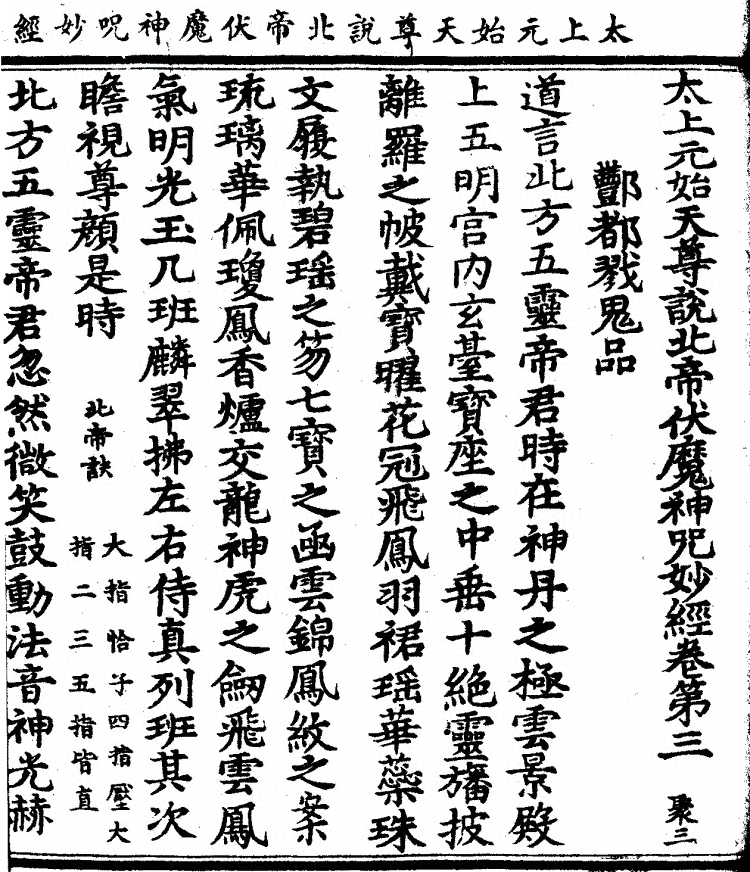 太上元始天尊說北帝伏魔神呪妙經
太上元始天尊說北帝伏魔神呪妙經卷第三 聚三
酆都戮鬼品
道言北方五靈帝君時在神丹之極雲景殿
上五明宮内玄臺寶座之中垂十絕靈旛披
離羅之帔戴寶曜花冠飛鳳羽裙瑶華蘂珠
文履執碧瑶之笏七寶之函雲錦鳳紋之案
琉璃華佩瓊鳳香爐交龍神虎之劒飛雲鳳
氣明光玉几班麟翠拂左右侍真列班其次
瞻視尊顔是時 北帝訣 大指恰子四指壓大
指二三五指皆直
北方五靈帝君忽然微笑鼓動法音神光赫